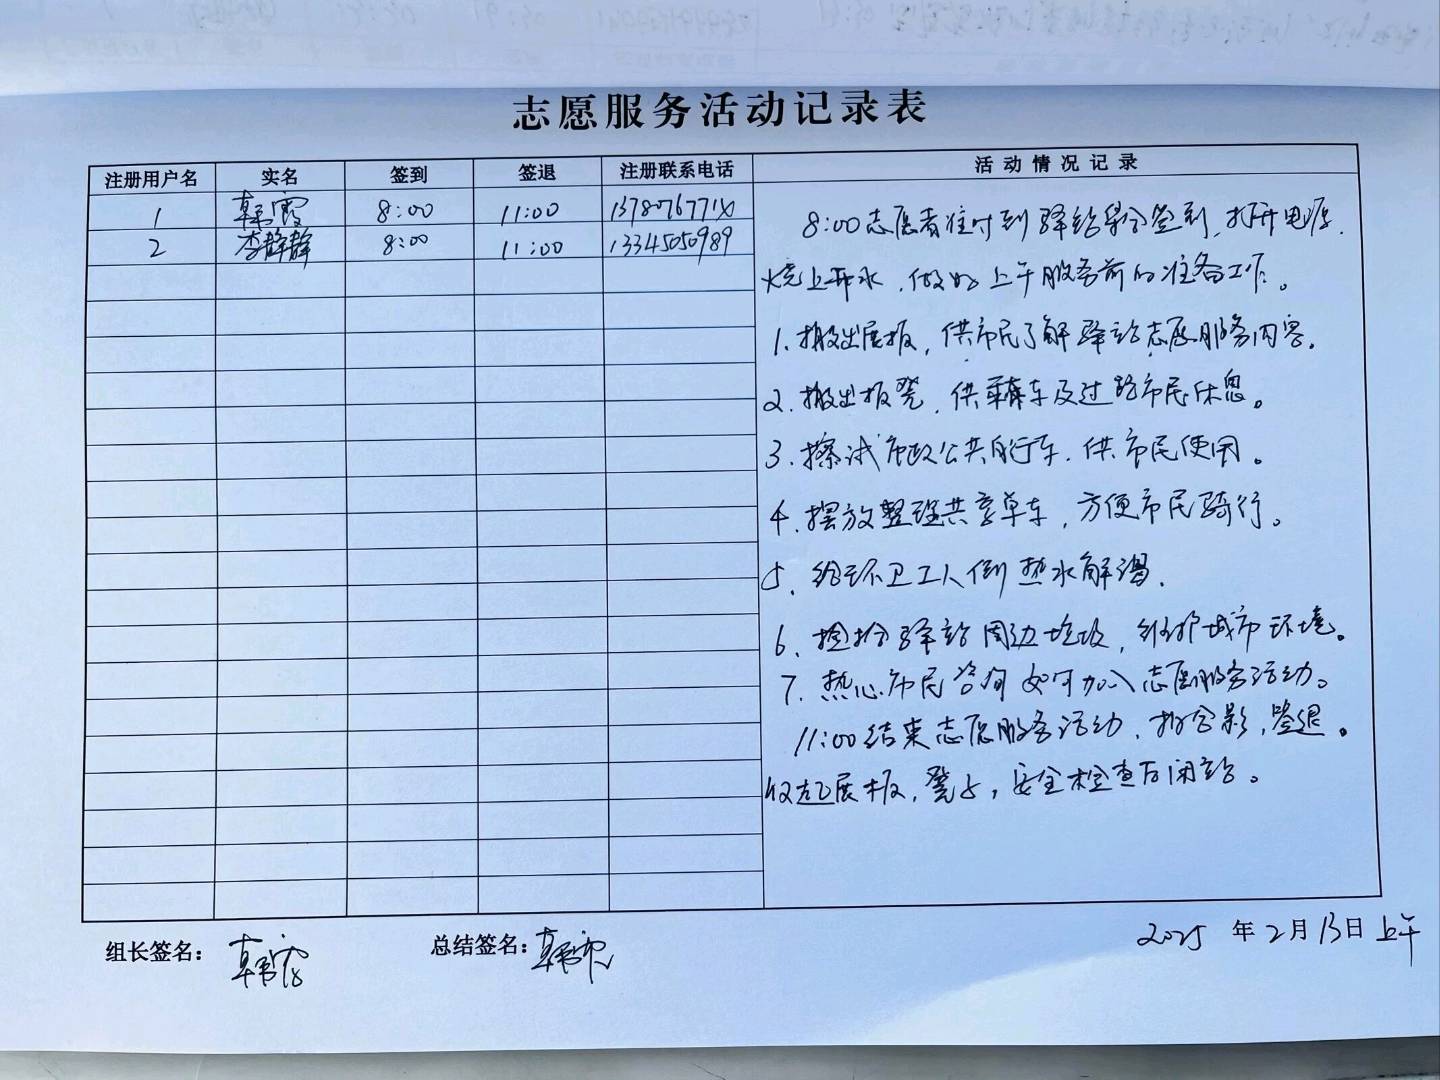 志愿服务活动记录表
注册用户名 实名 签到 签退 注册联系电话 活动情况记录
1 韩霞 8:00 11:00
2 李静静 8:00 11:00 13345050989
8:00志愿者准时到驿站 签到,打开电源,
烧上开水,做好上午服务前的准备工作。
1.搬出展板,供市民了解驿站志愿服务内容。
2.搬出板凳,供乘车及过路市民休息。
3.擦拭市政公共自行车,供市民使用。
4.摆放整理共享单车,方便市民骑行。
5.给环卫工人倒热水解渴.
6.捡拾驿站周边垃圾,维护城市环境。
7.热心市民咨询如何加入志愿服务活动。
11:00结束志愿服务活动,拍合影,签退。
收起展板,凳子,安全检查后闭站。
组长签名: 韩霞 总结签名: 韩霞
2025年2月13日上午